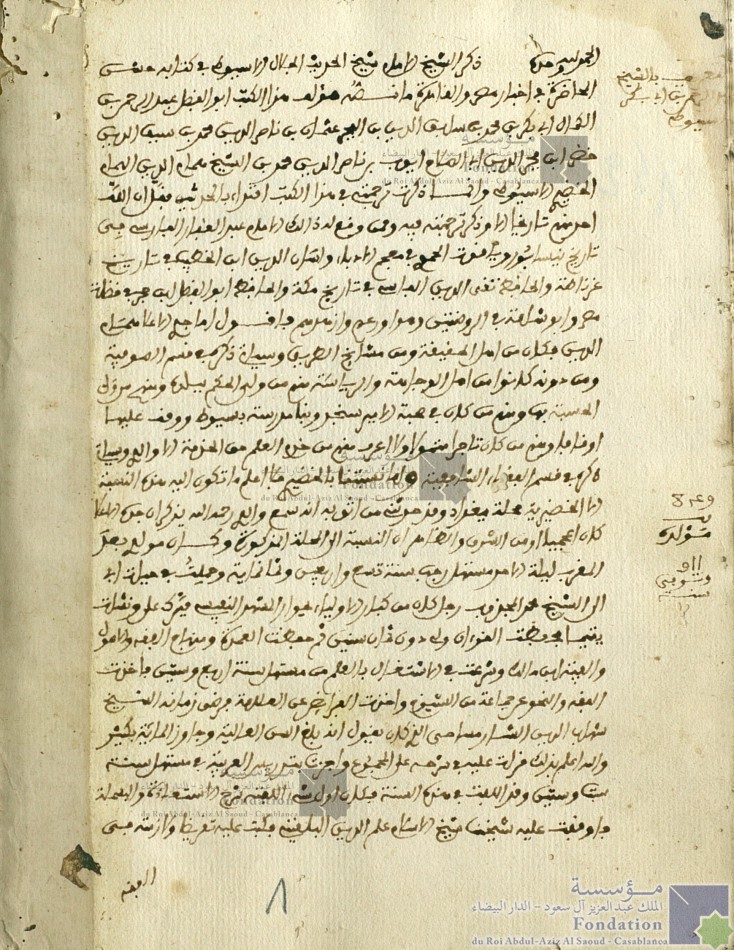 الحمد لله وحده ذكر الشيخ الامام شيخ الحديث الجلال الاسيوطي في كتابه حسن
المحاضرة في اخبار مصر والقاهرة ما نصه مؤلف هذا الكتاب ابو الفضل عبد الرحمن بن
الكمال ابي بكر بن محمد بن سابق الدين بن الفخر عثمان بن ناظر الدين محمد بن سيف الدين
خضر ابن نجم الدين ابي الصلاح ايوب بن ناصر الدين محمد بن الشيخ همام الدين الهمام
الخضيري الاسيوطي وانما ذكرت ترجمتي في هذا الكتاب اقتداء بالمحدثين فقل ان الف
احد منهم تاريخا الا وذكر ترجمته فيه وممن وقع له ذالك الامام عبد الغافر الفارسي في
تاريخ نيسابور وياقوت الحموي في معجم الادباء ولسان الدين ابن الخطيب في تاريخ
غرناطة والحافظ تقي الدين الفاسي في تاريخ مكة والحافظ ابو الفضل ابن حجر في قضاة
مصر وابو شامة في الروضتين وهو اورعهم وازهدهم فاقول اما جدي الاعلا همام
الدين فكان من اهل الحقيقة ومن مشايخ الطريق وسياتي ذكره في قسم الصوفية
ومن دونه كانوا من اهل الوجاهة والرياسة منهم من ولي الحكم ببلده ومنهم من ولي
الحسبة بها ومنهم من كان في صحبة الامير شيخو وبنا مدرسة بسيوط ووقف عليها
اوقافا ومنهم من كان تاجرا متمولا ولا اعرف منهم من خدم العلم حق الخدمة الا والدي وسياتي
ذكره في قسم الفقهاء الشافعية واما نسبتنا بالخضيري فلا اعلم ما تكون اليه هذه النسبة
الا الخضيرية محلة ببغداد وقد حدثني من اثق به انه سمع والدي رحمه الله يذكر ان جده الاعلا
كان اعجميا او من الشرق والظاهر ان النسبة الى المحلة المذكورة وكان مولدي بعد
المغرب ليلة الاحد مستهل رجب سنة تسع واربعين وثمانماية وحملت في حياة ابي
الى الشيخ محمد المجذوب رجل كان من كبار الاولياء بجوار المشهد النفيسي فبرك علي ونشات
يتيما فحفظت القرءان ولي دون ثمان سنين ثم حفظت العمدة ومنهاج الفقه والاصول
والفية ابن مالك وشرعت في الاشتغال بالعلم من مستهل سنة اربع وستين فاخذت
الفقه والنحو عن جماعة من الشيوخ واخذت الفرائض عن العلامة فرضي زمانه الشيخ
شهاب الدين الشارمساحي الذي كان يقول انه بلغ السن العالية وجاوز الماية بكثير
والله اعلم بذلك قرات عليه في شرحه على المجموع واجزت بتدريس العربية في مستهل سنة
ست وستين وقد الفت في هذه السنة فكان اول شيء الفته شرح الاستعاذة والبسملة
واوقفت عليه شيخنا شيخ الاسلام علم الدين البلقيني فكتب عليه تقريظا ولازمته في
الفقه
بالشيخ
ابي بكر
سيوطي
849
مولده
911
وتوفي
سنة
8
مؤسسة
الملك عبد العزيز آل سعود - الدار البيضاء
Fondation
du Roi Abdul-Aziz Al Saoud - Casablanca